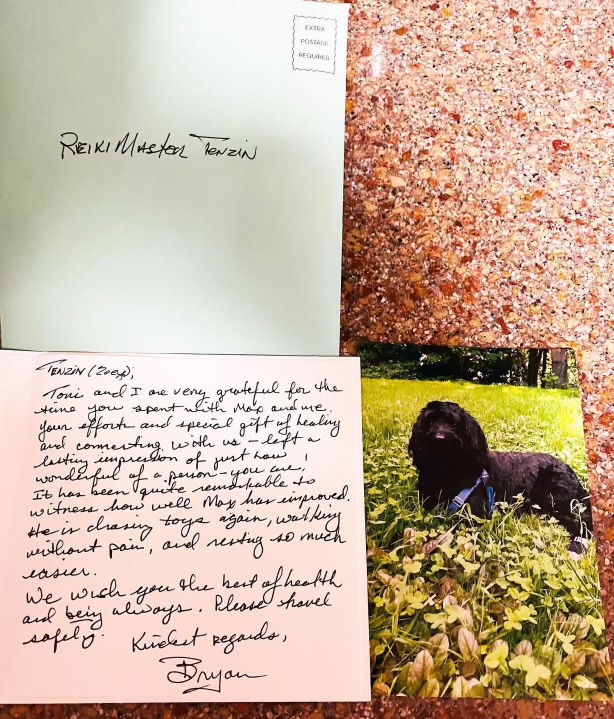 EXTRA
POSTAGE
REQUIRED
REIKI MASTER TENZIN
TENZIN
Toni and I are very grateful for the
time you spent with Max and me.
Your efforts and special gift of healing
and connecting with us – left a
lasting impression of just how
wonderful of a person – you are!
It has been quite remarkable to
witness how well Max has improved.
He is chasing toys again, walking
without pain, and resting so much
easier.
We wish you the best of health
and being always. Please travel
safely.
Kindest regards,
Bryan